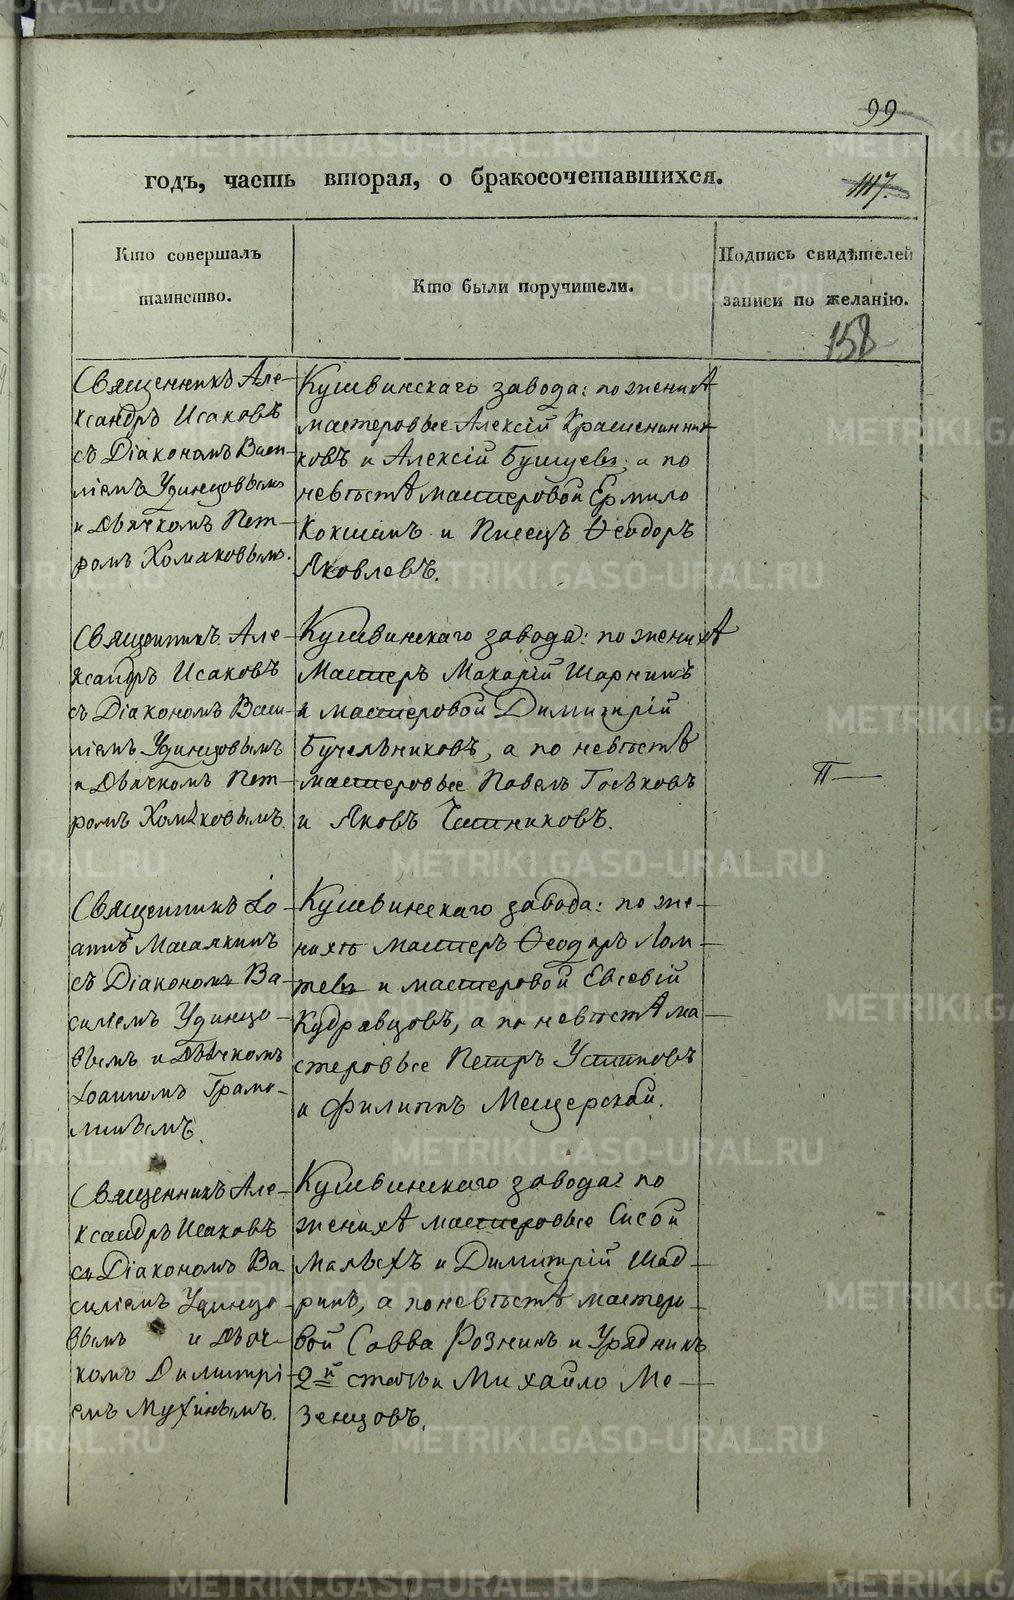 99
годъ, часть вторая, о бракосочетавшихся.
117.
Кто совершалъ
таинство.
Кто были поручители.
Подпись свидѣтелей
записи по желанію.
158
Священникъ Але-
ксандръ Исаковъ
съ Діакономъ Васи-
ліемъ Удинцовымъ
и Дьячкомъ Пет-
ромъ Хомяковымъ.
Кушвинскаго завода: по женихѣ
мастеровые Алексій Крашенинни-
ковъ и Алексій Бушуевъ, а по
невѣстѣ мастеровой Ермило
Кокшинъ и Писецъ Ѳеодоръ
Яковлевъ.
Священникъ Але-
ксандръ Исаковъ
съ Діакономъ Васи-
ліемъ Удинцовымъ
и Дьячкомъ Пет-
ромъ Хомяковымъ.
Кушвинскаго завода: по женихѣ
Мастеръ Макарій Шарнинъ
и мастеровой Димитрій
Бучельниковъ, а по невѣстѣ
мастеровые Павелъ Гоньковъ
и Яковъ
П
Священникъ Іо-
аннъ
съ Діакономъ Ва-
силіемъ Удинцо-
вымъ и Дьячкомъ
Іоанномъ Грамо-
линымъ.
Кушвинскаго завода: по же-
нихѣ мастеръ Ѳеодоръ Лап-
тевъ и мастеровой Евсевій
Кудрявцовъ, а по невѣстѣ ма-
стеровые Петръ Устиновъ
и Филиппъ Мещерской.
Священникъ Але-
ксандръ Исаковъ
съ Діакономъ Ва-
силіемъ Удинцо-
вымъ и Дьяч-
комъ Димитрі-
емъ Мухинымъ.
Кушвинскаго завода: по
женихѣ мастеровые Сисой
Малыхъ и Димитрій Шад-
ринъ, а по невѣстѣ мастеро-
вой Савва Рознинъ и Урядникъ
2й статьи Михайло Ме-
зенцовъ.